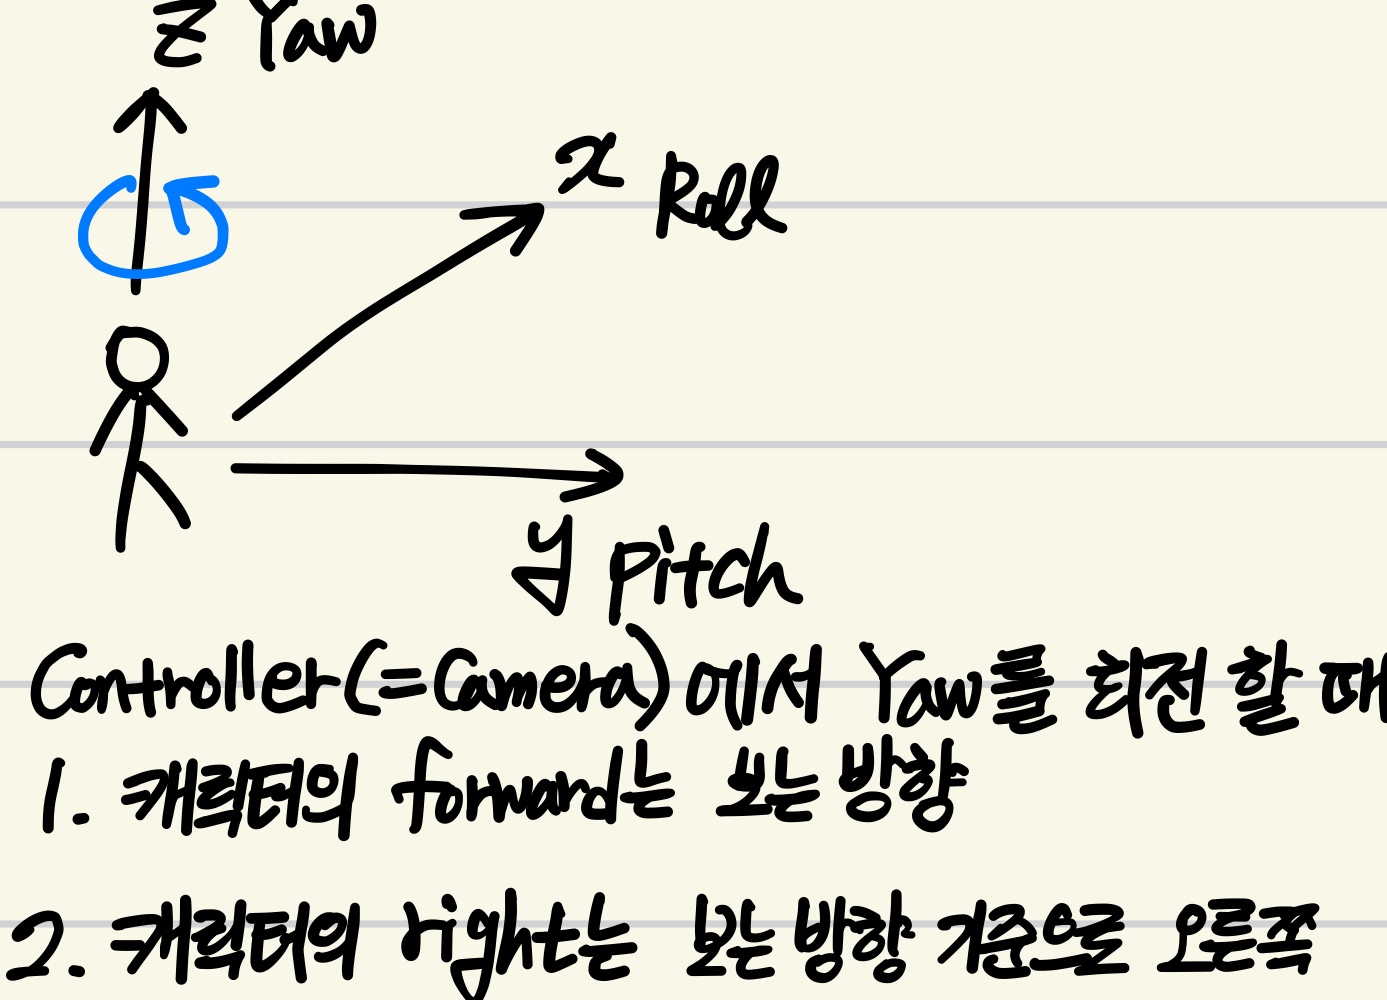 Z Yaw
x Roll
y pitch
Controller(=Camera)에서 Yaw를 회전 할 때
1. 캐릭터의 forward는 보는 방향
2. 캐릭터의 right는 보는 방향 기준으로 오른쪽